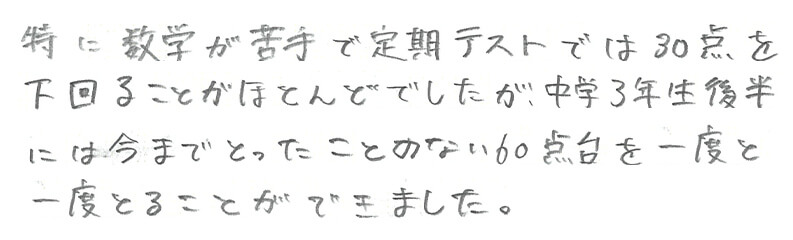 特に数学が苦手で定期テストでは30点を
下回ることがほとんどでしたが、中学3年生後半
には今までとったことのない60点台を一度と
一度とることができました。